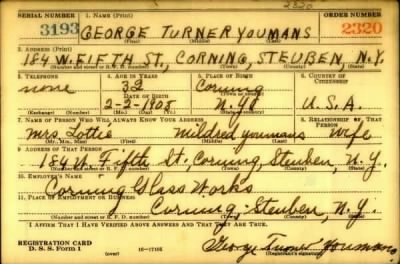 2320
SERIAL NUMBER 1. NAME (Print) ORDER NUMBER
3193 GEORGE TURNER YOUMANS 2320
(First) (Middle) (Last)
2. ADDRESS (Print)
184 W. FIFTH ST., CORNING, STEUBEN, N.Y.
(Number and street or R. F. D. number) (Town) (County) (State)
3. TELEPHONE 4. AGE IN YEARS 5. PLACE OF BIRTH 6. COUNTRY OF CITIZENSHIP
none 32 Corning
DATE OF BIRTH (Town or county)
2-2-1908 N.Y. U.S.A.
(Exchange) (Number) (Mo.) (Day) (Yr.) (State or country)
7. NAME OF PERSON WHO WILL ALWAYS KNOW YOUR ADDRESS 8. RELATIONSHIP OF THAT PERSON
Mrs. Lottie Mildred Youmans Wife
(Mr., Mrs., Miss) (First) (Middle) (Last)
9. ADDRESS OF THAT PERSON
184 W. Fifth St., Corning, Steuben, N.Y.
(Number and street or R. F. D. number) (Town) (County) (State)
10. EMPLOYER'S NAME
Corning Glass Works
11. PLACE OF EMPLOYMENT OR BUSINESS
Corning - Steuben, N.Y.
(Number and street or R. F. D. number) (Town) (County) (State)
I AFFIRM THAT I HAVE VERIFIED ABOVE ANSWERS AND THAT THEY ARE TRUE.
REGISTRATION CARD
D. S. S. Form 1 (over) 16-17105 George Turner Youmans
(Registrant's signature)